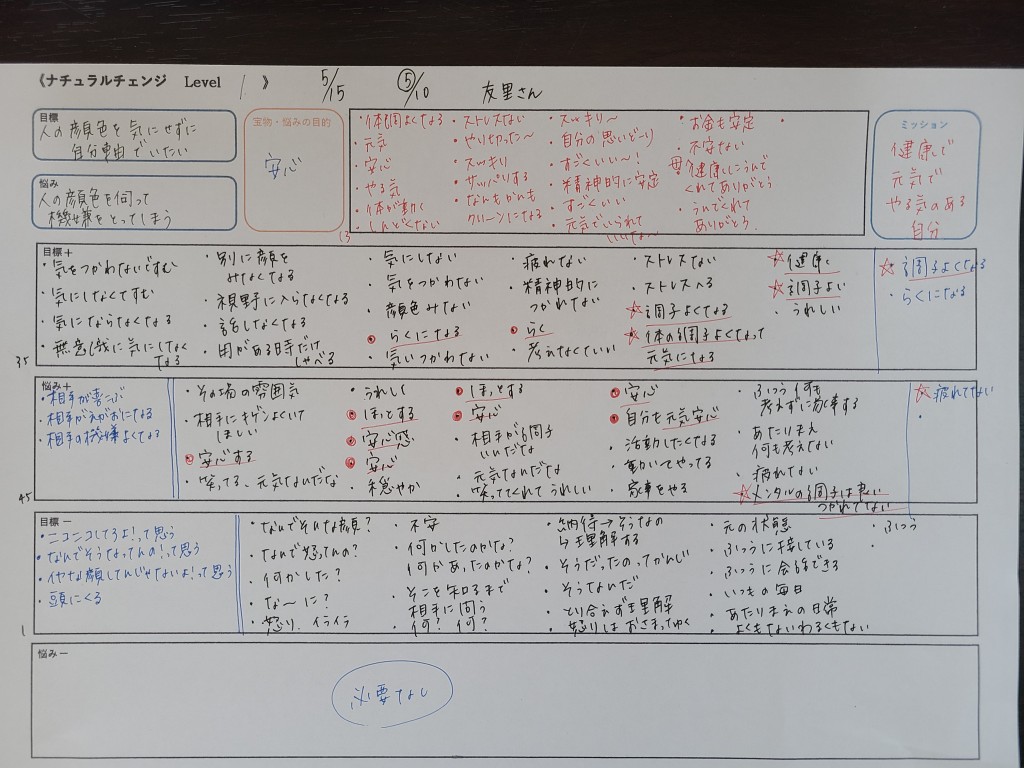 《ナチュラルチェンジ Level 1 》 5/15 5/10 友里さん
目標
人の顔色を気にせずに
自分自由でいたい
悩み
人の顔色を伺って
機嫌をとってしまう
宝物・悩みの目的
安心
・体調よくなる
・元気
・安心
・やる気
・体が動く
・しんどくない
・ストレスない
・やり切った〜
・スッキリ
・サッパリする
・なんもかんも
クリーンになる
・スッキリ〜
・自分の思いどーり
・すごくいい〜!
・精神的に安定
・すごくいい
・元気でいられて
いいな〜
・お金も安定
・不安ない
・母 健康にうんで
くれてありがとう
・うんでくれて
ありがとう.
・
13
ミッション
健康で
元気で
やる気のある
自分
目標+
・気をつかわないですむ
・気にしなくてすむ
・気にならなくなる
・無意識に気にしなく
なる
・別に顔を
みなくなる
・視野に入らなくなる
・話しなくなる
・用がある時だけ
しゃべる
・気にしない
・気をつかわない
・顔色みない
・らくになる
・気いつかわない
・疲れない
・精神的に
つかれない
・らく
・考えなくていい
・ストレスない
・ストレスへる
☆調子よくなる
☆体の調子よくなって
元気になる
☆健康
☆調子よい
・うれしい
☆調子よくなる
・らくになる
35
悩み+
・相手が喜こぶ
・相手がえがおになる
・相手の機嫌よくなる
・その場の雰囲気
・相手にキゲンよくいて
ほしい
・安心する
・笑ってる、元気なんだな
・うれしい
・ほっとする
・安心感
・安心
・穏やか
・ほっとする
・安心
・相手が調子
いいだな
・元気なんだな
・笑ってくれてうれしい
・安心
・自分も元気安心
・活動したくなる
・動いてやってる
・家事をやる
・ふつう 何も
考えずに家事する
・あたりまえ
何も考えない
・疲れない
☆メンタルの調子は良い
つかれてない
☆疲れてない
・
45
目標−
・ニコニコしてろよ!って思う
・なんでそうなってんの!って思う
・イヤな顔してんじゃないよ!って思う
・頭にくる
・なんでそんな顔?
・なんで怒ってんの?
・何かした?
・な〜に?
・怒り、イライラ
・不安
・何かしたのかな?
何かあったのかな?
・そこを知るまで
相手に問う
・何?何?
・納得→そうなの
↳理解する
・そうだったのってかんじ
・そうなんだ
・とり合えず理解
・怒りはおさまってゆく
・元の状態
・ふつうに接している
・ふつうに会話できる
・いつもの毎日
・あたりまえの日常
・よくもないわるくもない
・ふつう
・
1
悩み−
必要なし